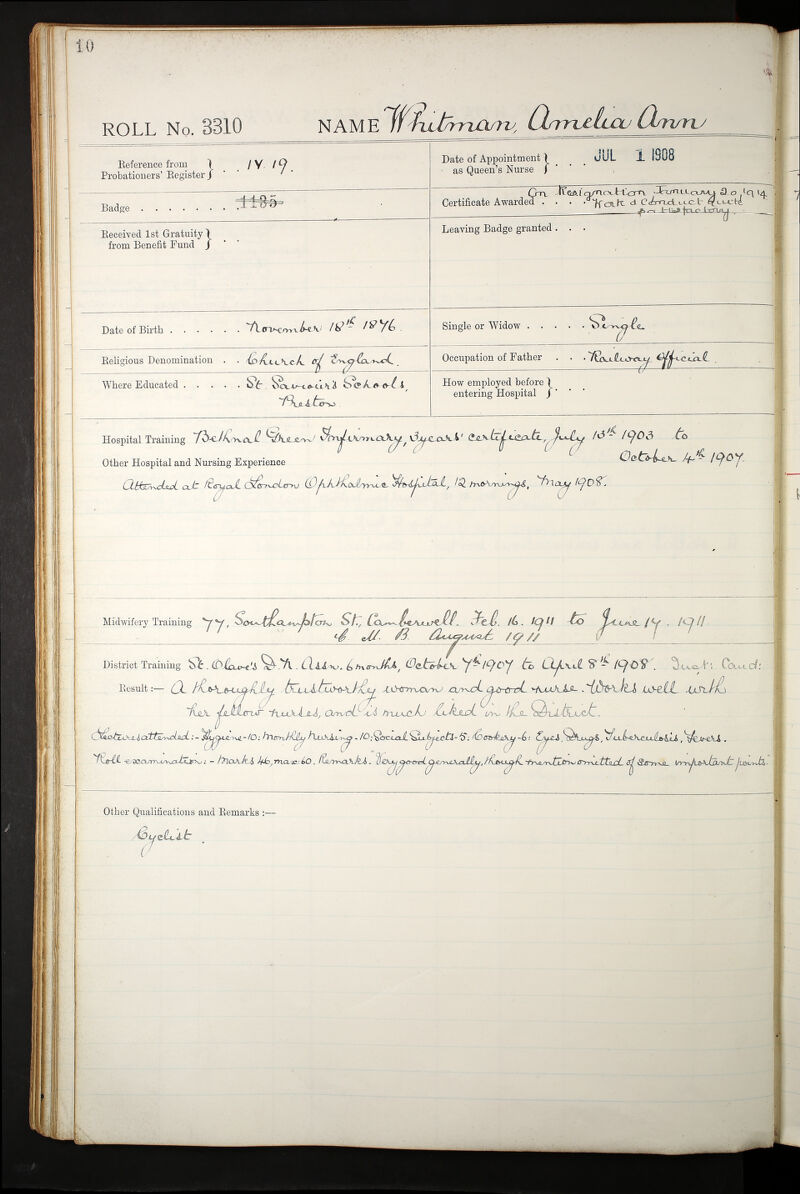 10
ROLL No. 3310 NAME Whitman, Amelia Ann
Reference from Probationers' Register } . . IV. 19.
Date of Appointment as Queen's Nurse } . . . JUL 1 1908
Badge . . . . . . . 1135
Certificate Awarded . . . . On Resignation January 20 1914.
for Work & Conduct quite
satisfactory.
Received 1st Gratuity from Benefit Fund } . .
Leaving Badge granted . . .
Date of Birth . . . . . . November 18th 1876.
Single or Widow . . . . . Single.
Religious Denomination . . Church of England.
Occupation of Father . . . Railway Official.
Where Educated . . . . . St. Saviour's Schools,
Preston
How employed before entering Hospital } . .
Hospital Training Bethnal Green Infirmary, 3 years' certificate, July 13th 1903 to
Other Hospital and Nursing Experience October 4th 1907.
Attended at Royal London Ophthalmic Hospital, 12 mornings, May 1908.
Midwifery Training 77, Southampton St., Camberwell. Feb. 16. 1911 to June 14. 1911.
C. M. B. August 1911
District Training St. Olave's D. N. Assn. 6 months, October 7th 1907 to April 8th 1908.
Result:— A thoroughly trustworthy woman and good nurse. Works well with
her fellow nurses, and is much liked in the District.
Lectures attended:- Hygiene-10: Monthly Nursing-10: Social Subjects-5: Cookery-6: Eyes, Drugs, Tuberculosis, Fevers.
Roll examination:- Marks 46, max: 60. Remarks. Very good generally, though mention omitted of some important points.
Other Qualifications and Remarks :—
Cyclist.